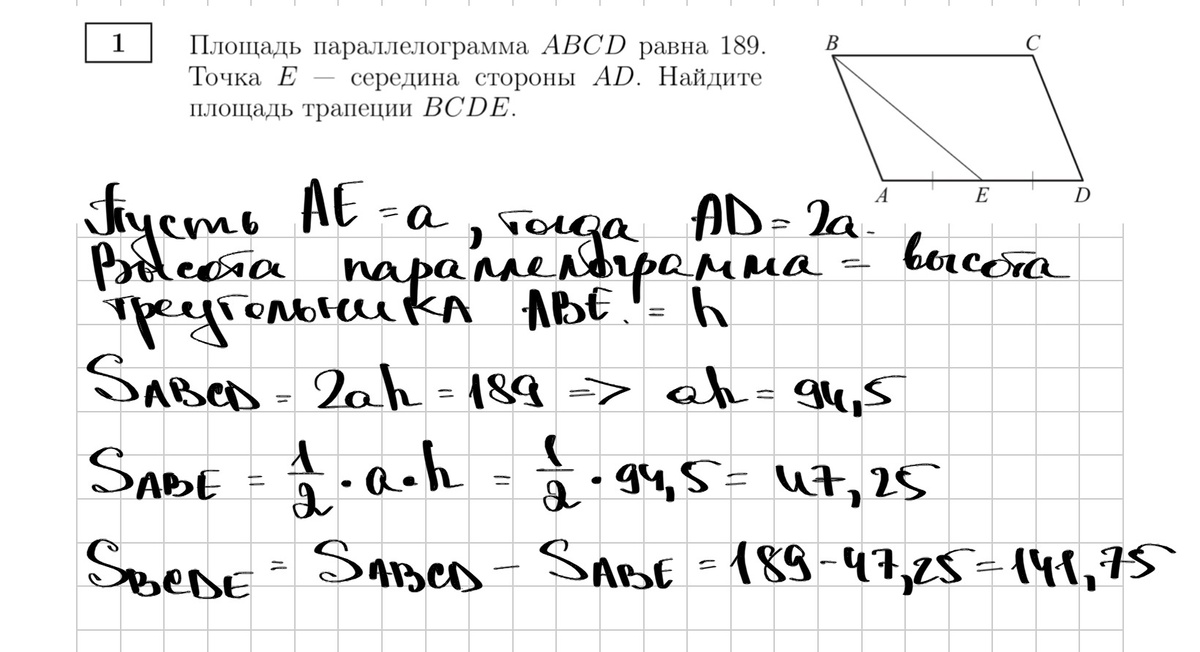 1
Площадь параллелограмма ABCD равна 189.
Точка E — середина стороны AD. Найдите
площадь трапеции BCDE.
B
C
A
E
D
Пусть AE = a, тогда AD = 2a.
Высота параллелограмма = высота
треугольника ABE. = h
S_ABCD = 2ah = 189 => ah = 94,5
S_ABE = 1/2 · a · h = 1/2 · 94,5 = 47,25
S_BCDE = S_ABCD − S_ABE = 189 − 47,25 = 141,75